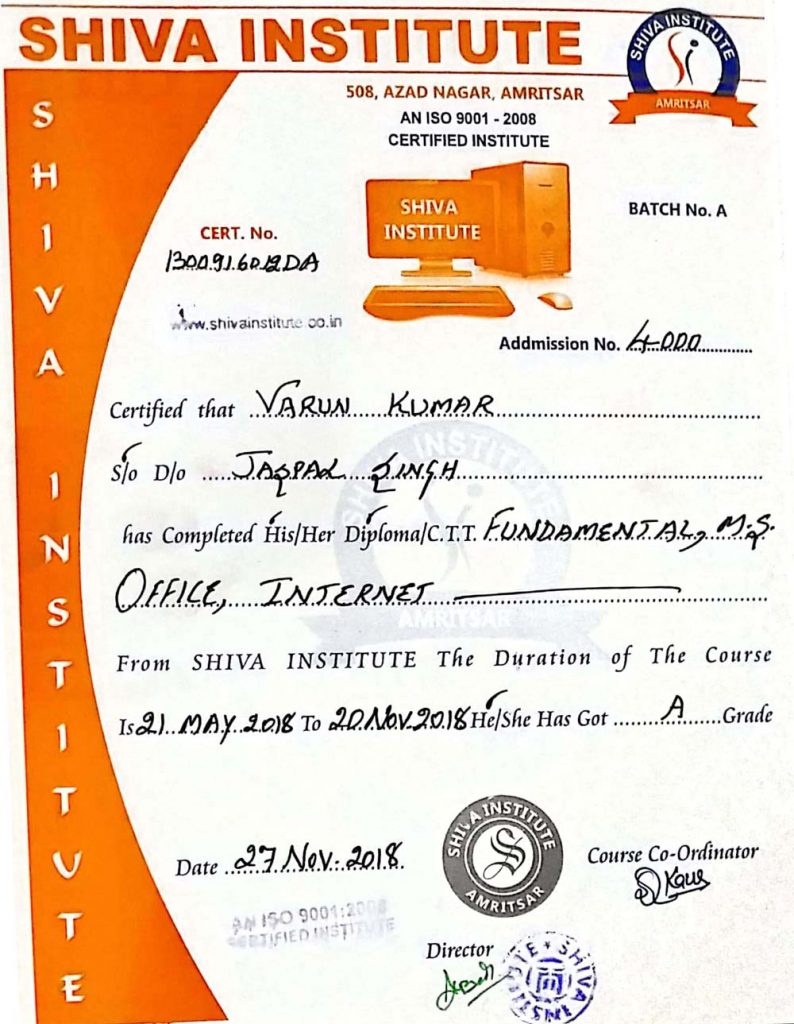 SHIVA INSTITUTE
SHIVA INSTITUTE
AMRITSAR
508, AZAD NAGAR, AMRITSAR
AN ISO 9001 - 2008
CERTIFIED INSTITUTE
SHIVA INSTITUTE
SHIVA
INSTITUTE
BATCH No. A
CERT. No.
www.shivainstitute.co.in
Addmission No. 4000
Certified that VARUN KUMAR
S/o D/o JASPAL SINGH
has Completed His/Her Diploma/C.T.T. FUNDAMENTAL, M.S.
OFFICE, INTERNET
INSTITUTE
AMRITSAR
From SHIVA INSTITUTE The Duration of The Course
Is 21 MAY 2018 To 20 Nov 2018 He/She Has Got A Grade
SHIVA INSTITUTE
AMRITSAR
Date 27 Nov. 2018
Course Co-Ordinator
Kaur
AN ISO 9001:2008
CERTIFIED INSTITUTE
Director
SHIVA INSTITUTE